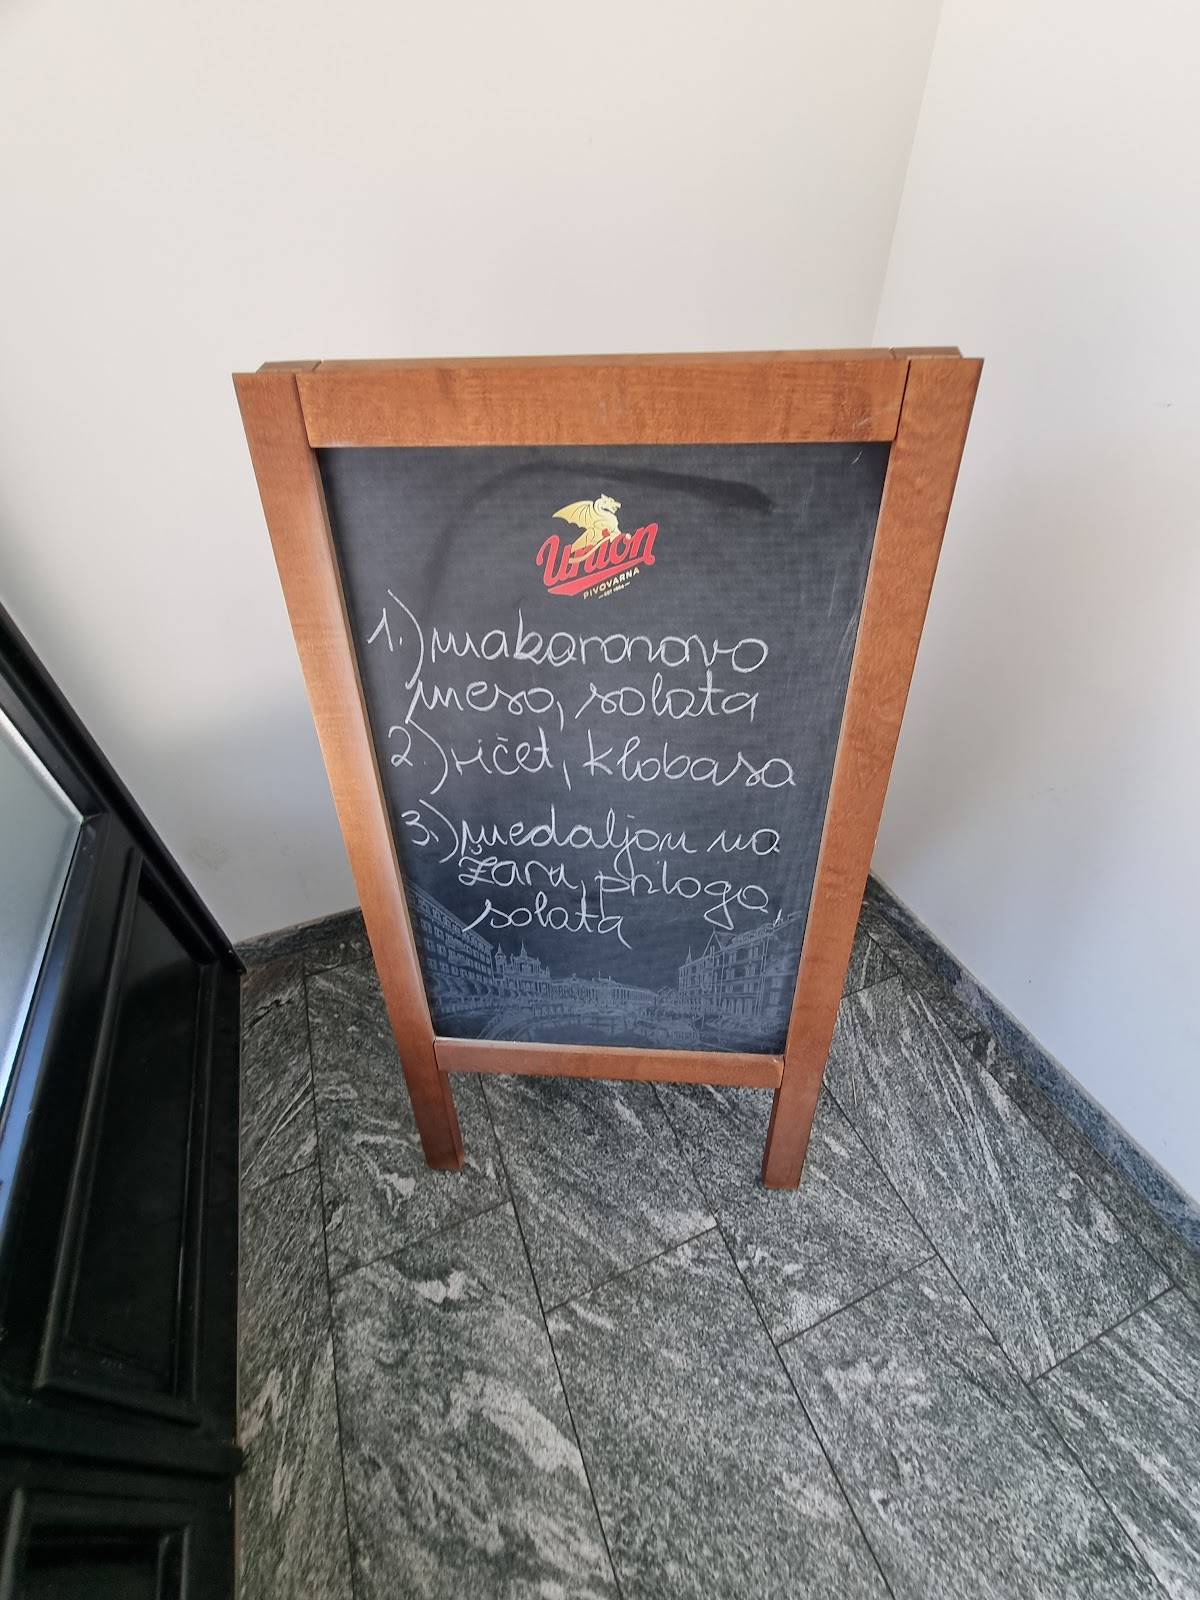 Union
PIVOVARNA
EST 1864
1.) makaronovo
meso, solata
2.) ričet, klobasa
3.) medaljon na
žaru, priloga,
solata